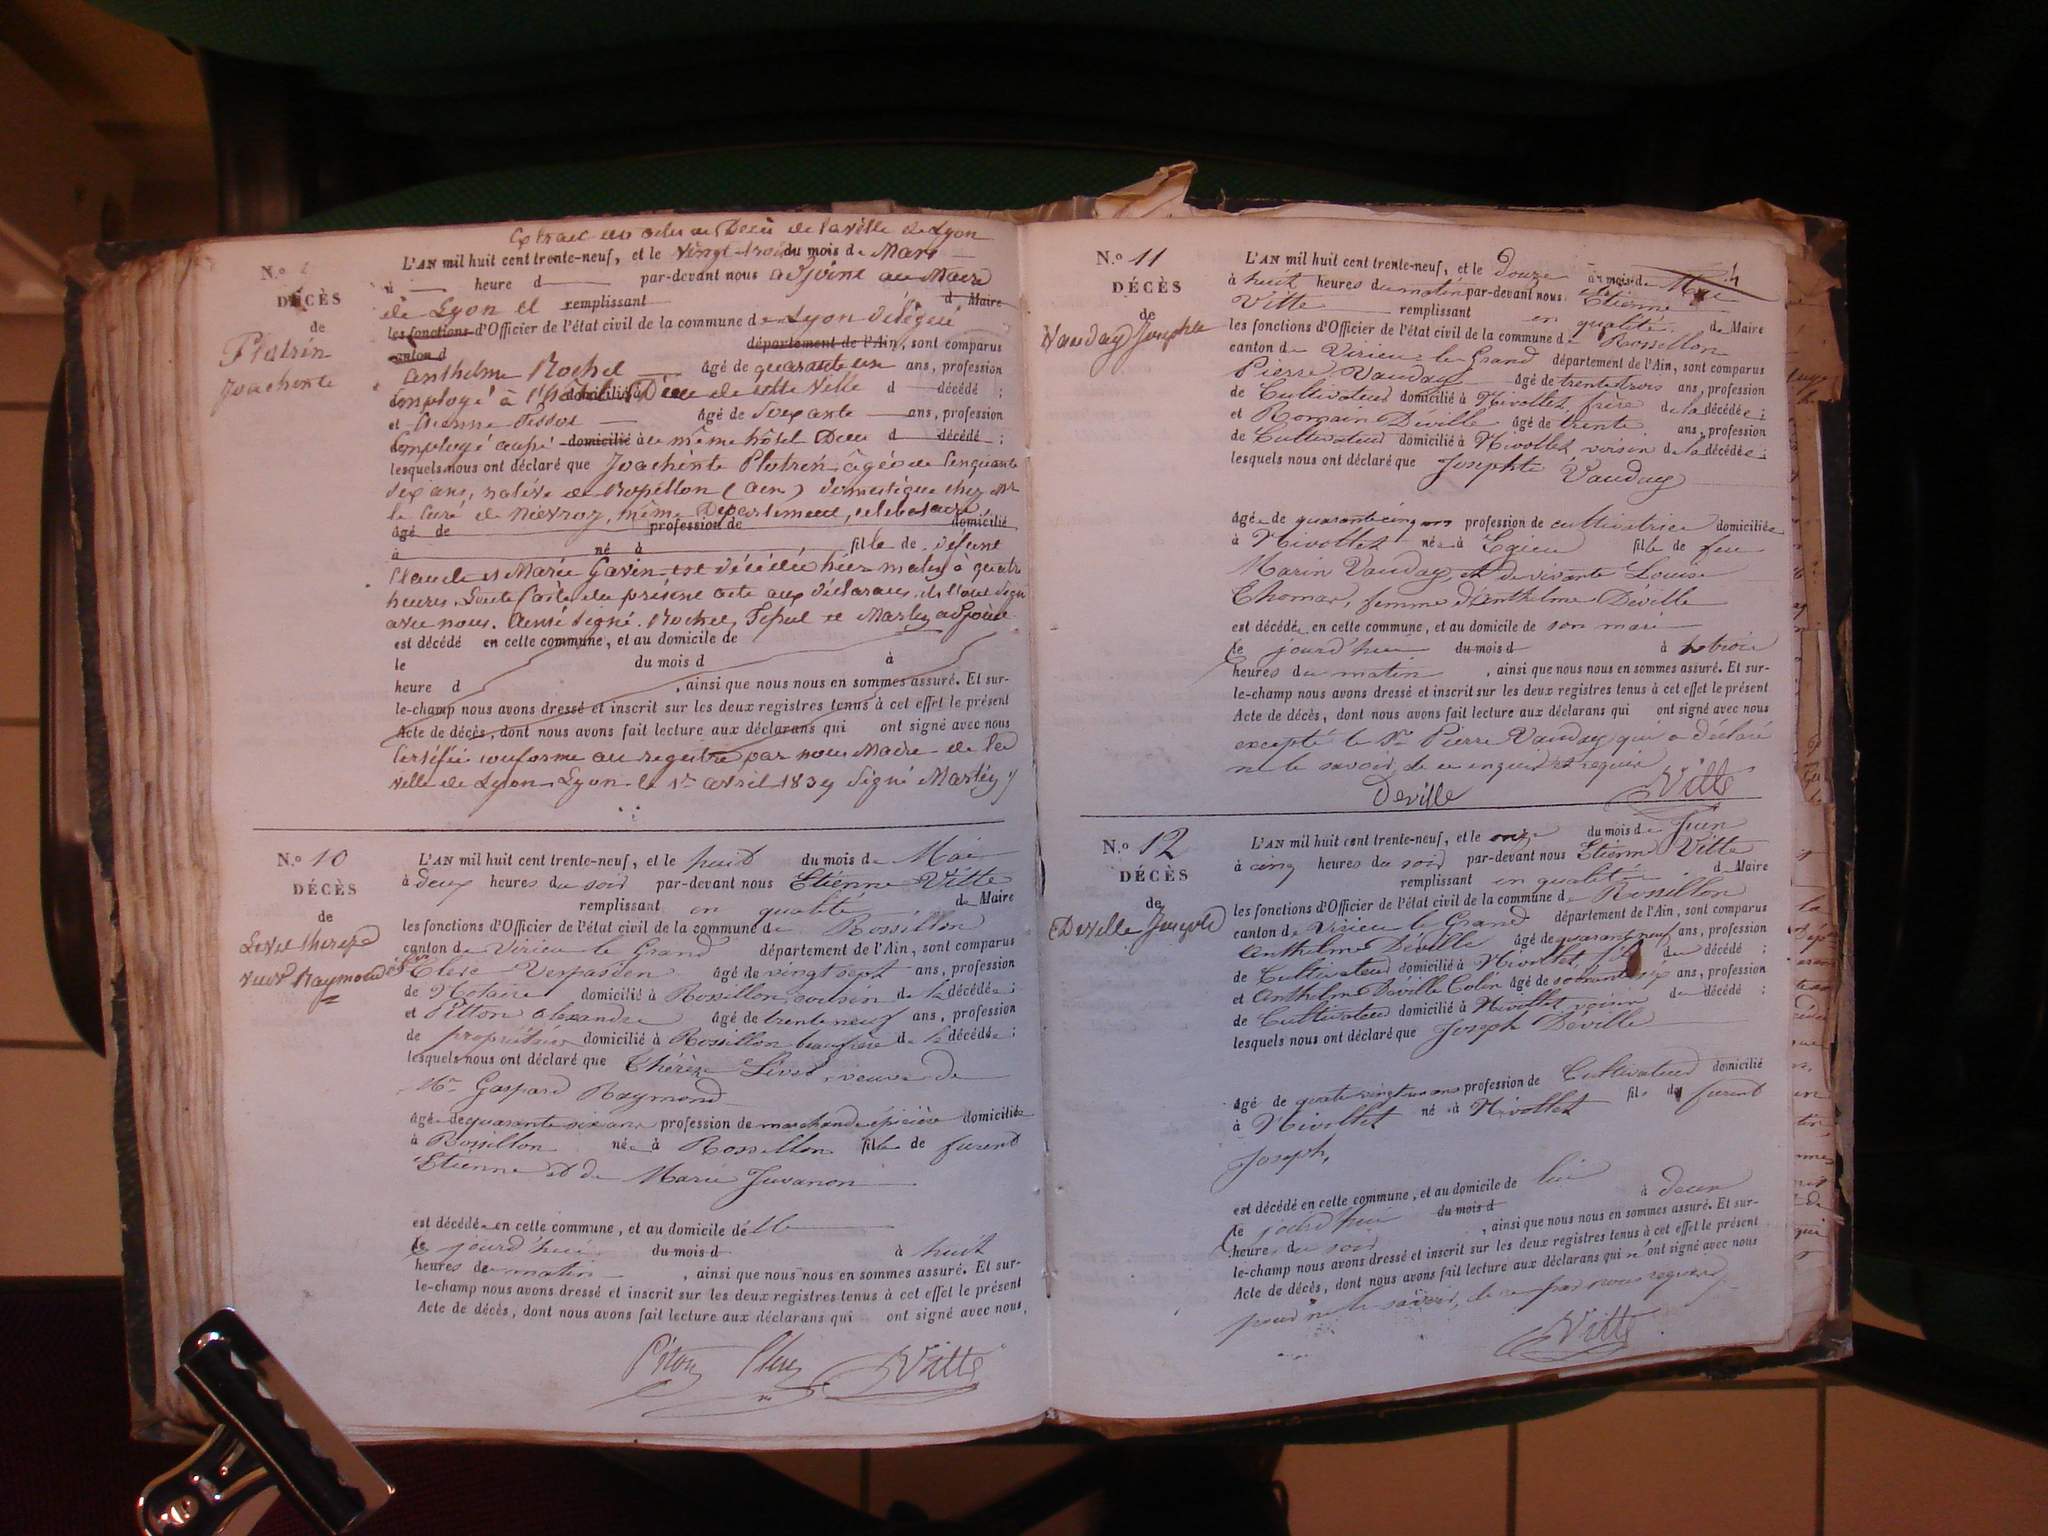 Extrait des actes de Décès de la ville de Lyon
N.o
DÉCÈS
de
Plotrin
Joachinte
L'AN mil huit cent trente-neuf, et le vingt-trois du mois de Mars
d heure d par-devant nous adjoint au Maire
de Lyon et remplissant d Maire
les fonctions d'Officier de l'état civil de la commune de Lyon délégué
canton d département de l'Ain, sont comparus
Anthelme Rochel âgé de quarante un ans, profession
Employé à l'hôtel Dieu de cette ville d décédé ;
et Etienne Tissot âgé de Soixante ans, profession
Employé domicilié à même hôtel Dieu d décédé ;
lesquels nous ont déclaré que Joachinte Plotrin âgée de Cinquante
six ans, native de Rossillon (ain) domestique chez Mr
le Curé de Niévroz, même Département, célibataire,
âgé de profession de domicilié
à né à fille de défunt
Claude et Marie Gavin est décédée hier matin à quatre
heures. Lecture faite du présent acte aux déclarans, ils l'ont signé
avec nous. Ainsi signé. Rochel, Tissot et Martin adjoint
est décédé en cette commune, et au domicile de
le du mois d à
heure d , ainsi que nous nous en sommes assuré. Et sur-
le-champ nous avons dressé et inscrit sur les deux registres tenus à cet effet le présent
Acte de décès, dont nous avons fait lecture aux déclarans qui ont signé avec nous
Certifié conforme au registre par nous Maire de la
ville de Lyon. Lyon le 1er avril 1839 Signé Martin
N.o 10
DÉCÈS
de
Livet thérèze
veuve Raymond
L'AN mil huit cent trente-neuf, et le huit du mois de Mai
à deux heures du soir par-devant nous Etienne Vitte
remplissant en qualité de Maire
les fonctions d'Officier de l'état civil de la commune de Rossillon
canton de Virieu le Grand département de l'Ain, sont comparus
Clerc Vespasien âgé de vingt sept ans, profession
de Notaire domicilié à Rossillon, cousin de la décédée ;
et Pitton Alexandre âgé de trente neuf ans, profession
de propriétaire domicilié à Rossillon beaufrère de la décédée ;
lesquels nous ont déclaré que Thérèze Livet, veuve de
Mr Gaspard Raymond
âgée de quarante six ans profession de marchande épicière domiciliée
à Rossillon née à Rossillon fille de furent
Etienne et de Marie Juvanon
est décédée en cette commune, et au domicile d'elle
le jourd'hui du mois d à huit
heures du matin , ainsi que nous nous en sommes assuré. Et sur-
le-champ nous avons dressé et inscrit sur les deux registres tenus à cet effet le présent
Acte de décès, dont nous avons fait lecture aux déclarans qui ont signé avec nous.
Piton Clerc Vitte
N.o 11
DÉCÈS
de
Vauday Josephte
4
L'AN mil huit cent trente-neuf, et le douze du mois de Mai
à huit heures du matin par-devant nous Etienne
Vitte remplissant en qualité de Maire
les fonctions d'Officier de l'état civil de la commune de Rossillon
canton de Virieu le Grand département de l'Ain, sont comparus
Pierre Vauday âgé de trente trois ans, profession
de Cultivateur domicilié à Nivollet, frère de la décédée ;
et Romain Déville âgé de trente ans, profession
de Cultivateur domicilié à Nivollet, voisin de la décédée ;
lesquels nous ont déclaré que Josephte Vauday
âgée de quarante cinq ans profession de cultivatrice domiciliée
à Nivollet née à Egieu fille de feu
Marin Vauday, et de vivante Louise
Thomas, femme d'Anthelme Deville
est décédée en cette commune, et au domicile de son mari
le jourd'hui du mois d à trois
heures du matin , ainsi que nous nous en sommes assuré. Et sur-
le-champ nous avons dressé et inscrit sur les deux registres tenus à cet effet le présent
Acte de décès, dont nous avons fait lecture aux déclarans qui ont signé avec nous
excepté le Sr Pierre Vauday qui a déclaré
ne le savoir, de ce enquis et requis
Deville Vitte
N.o 12
DÉCÈS
de
Deville Joseph
L'AN mil huit cent trente-neuf, et le onze du mois de Juin
à cinq heures du soir par-devant nous Etienne Vitte
remplissant en qualité de Maire
les fonctions d'Officier de l'état civil de la commune de Rossillon
canton de Virieu le Grand département de l'Ain, sont comparus
Anthelme Déville âgé de quarante neuf ans, profession
de Cultivateur domicilié à Nivollet, fils du décédé ;
et Anthelme Déville Colin âgé de soixante six ans, profession
de Cultivateur domicilié à Nivollet voisin du décédé ;
lesquels nous ont déclaré que Joseph Déville
âgé de quatre vingt un ans profession de Cultivateur domicilié
à Nivollet né à Nivollet fils de furent
Joseph,
est décédé en cette commune, et au domicile de lui
le jourd'hui du mois d à deux
heures du soir , ainsi que nous nous en sommes assuré. Et sur-
le-champ nous avons dressé et inscrit sur les deux registres tenus à cet effet le présent
Acte de décès, dont nous avons fait lecture aux déclarans qui n'ont signé avec nous
pour ne le savoir, de ce par nous requis
Vitte